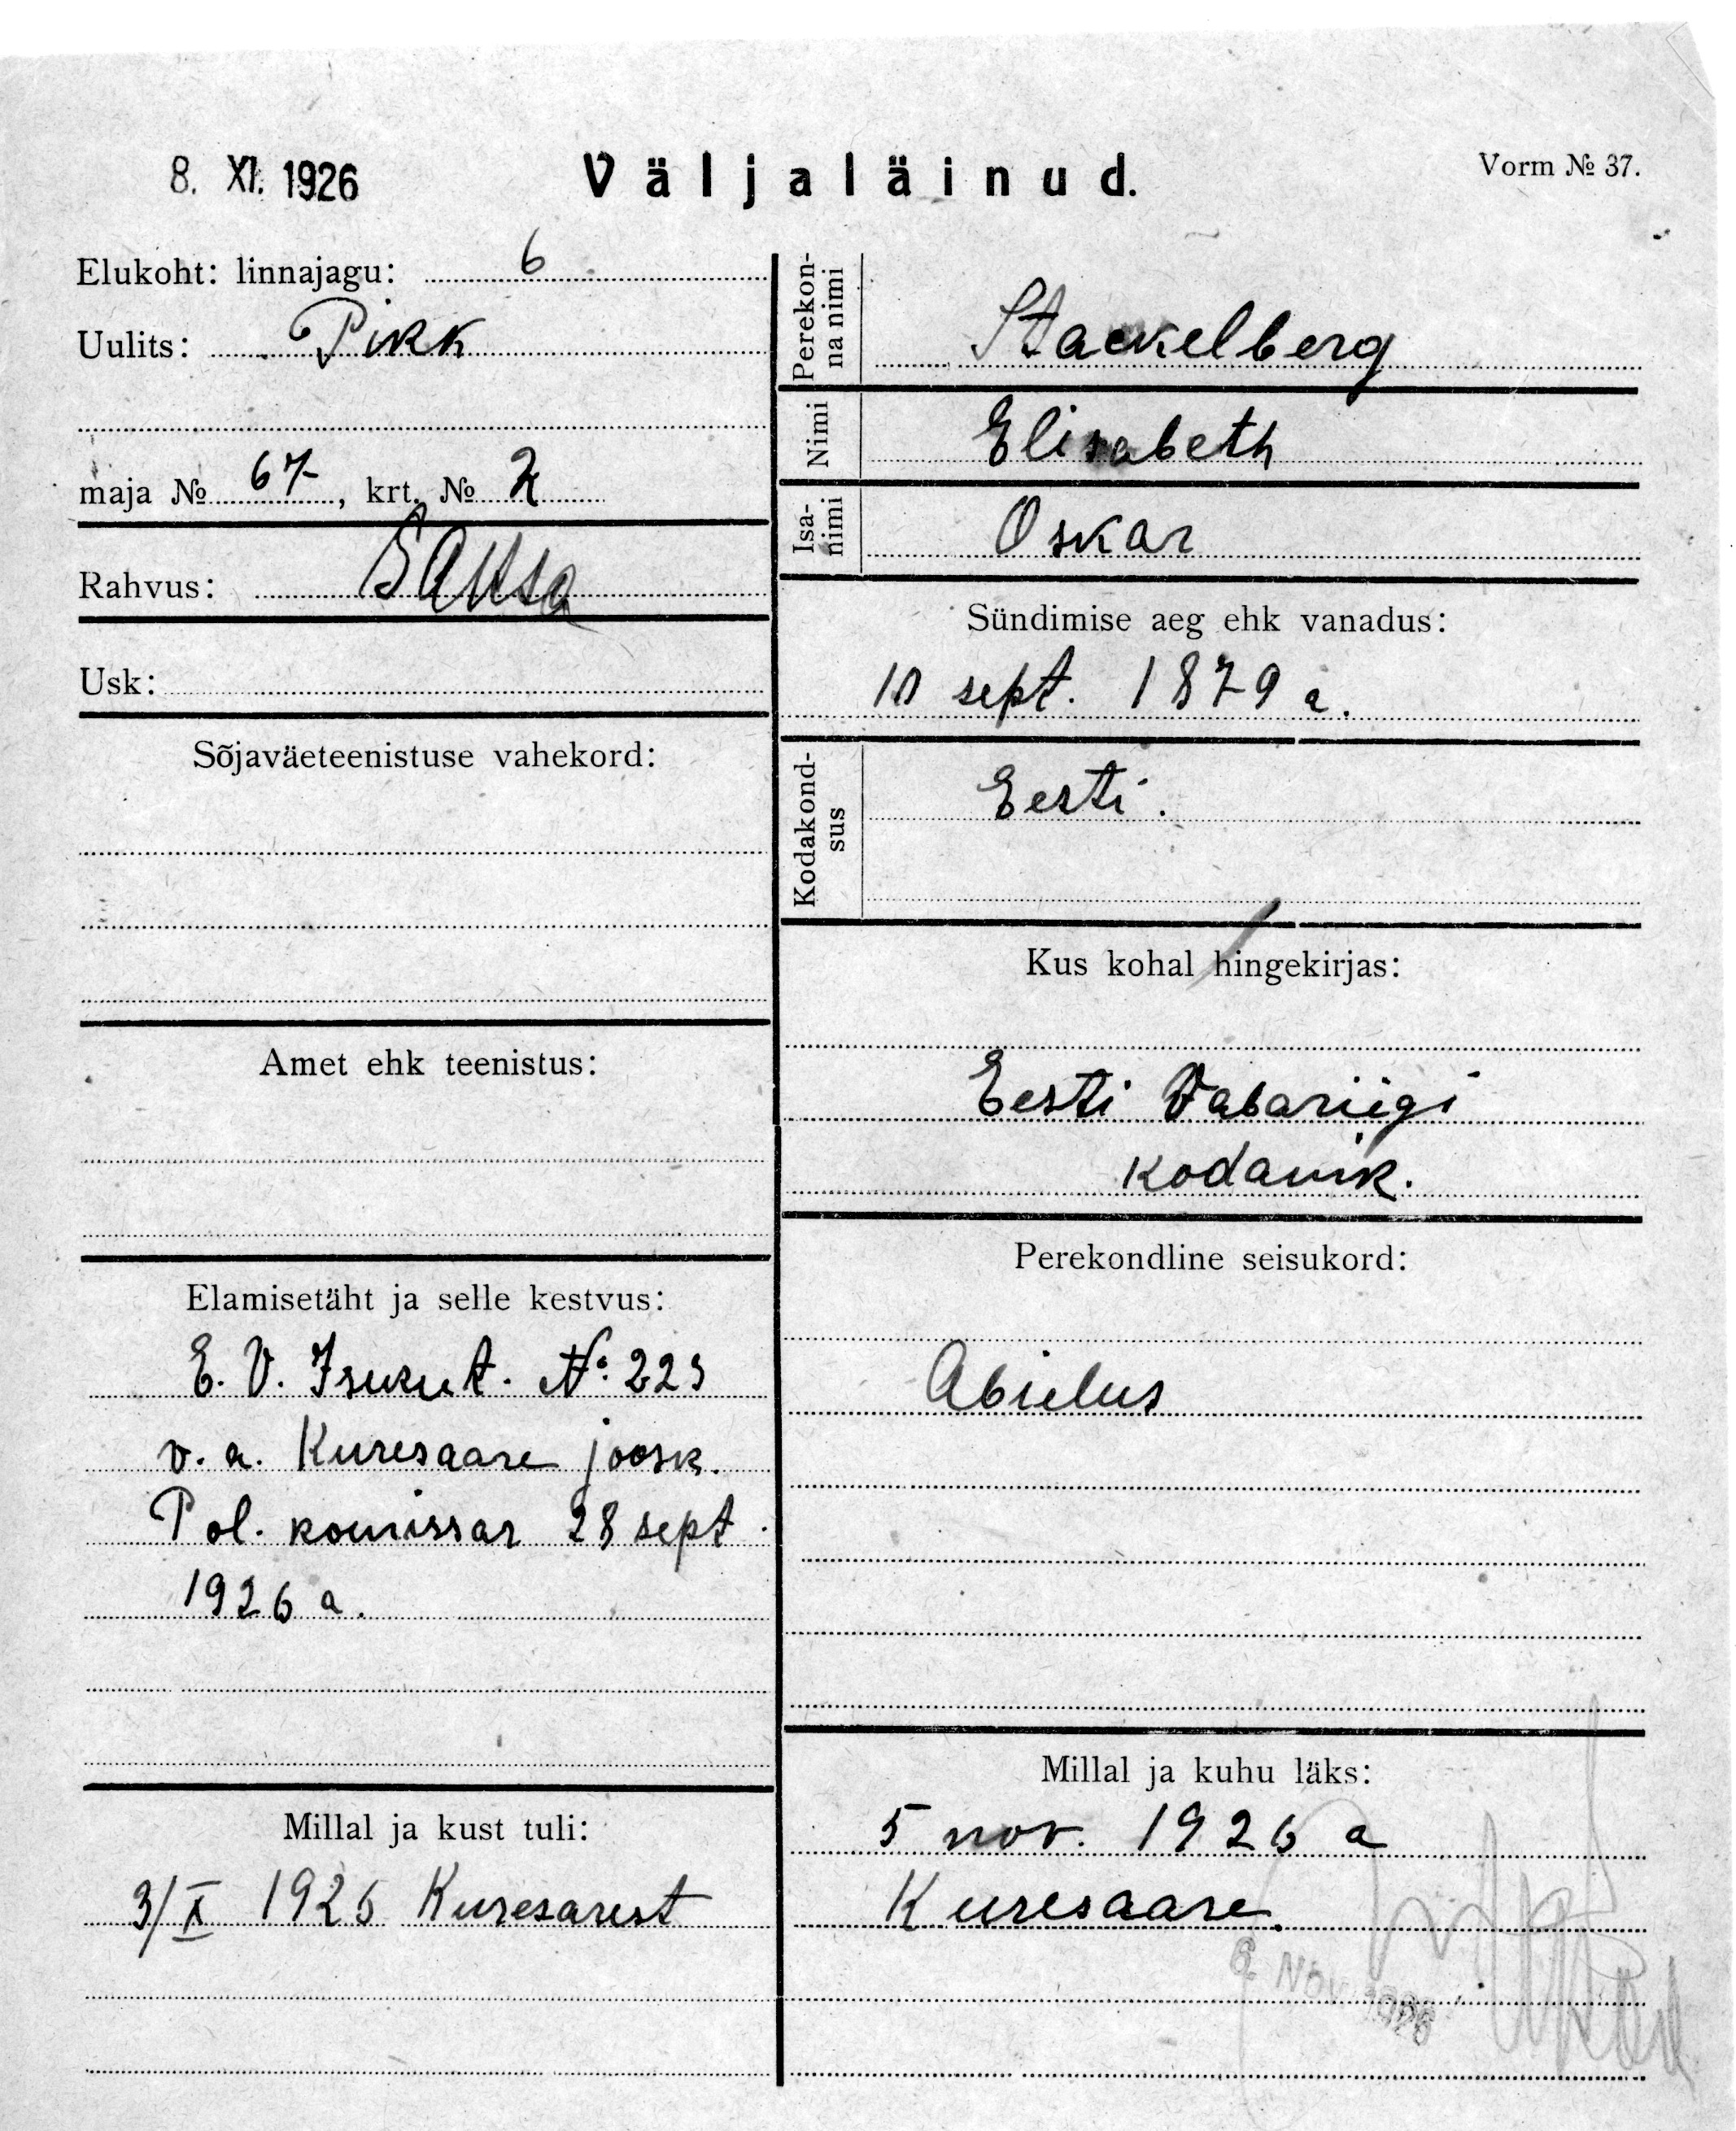 8. XI. 1926
Väljaläinud.
Vorm № 37.
Elukoht: linnajagu: 6
Uulits: Pikk
maja № 67, krt. № 2
Rahvus: Saksa
Usk:
Sõjaväeteenistuse vahekord:
Amet ehk teenistus:
Elamisetäht ja selle kestvus:
E. V. Isikut. №: 223
v. a. Kuresaare joosk.
Pol. komissar 28 sept.
1926 a.
Millal ja kust tuli:
3/X 1926 Kuresarest
Perekon-
na nimi
Stackelberg
Nimi
Elisabeth
Isa-
nimi
Oskar
Sündimise aeg ehk vanadus:
10 sept. 1879 a.
Kodakond-
sus
Eesti.
Kus kohal hingekirjas:
Eesti Vabariigi
kodanik.
Perekondline seisukord:
Abielus
Millal ja kuhu läks:
5 nov. 1926 a
Kuresaare.
6 NOV 1926